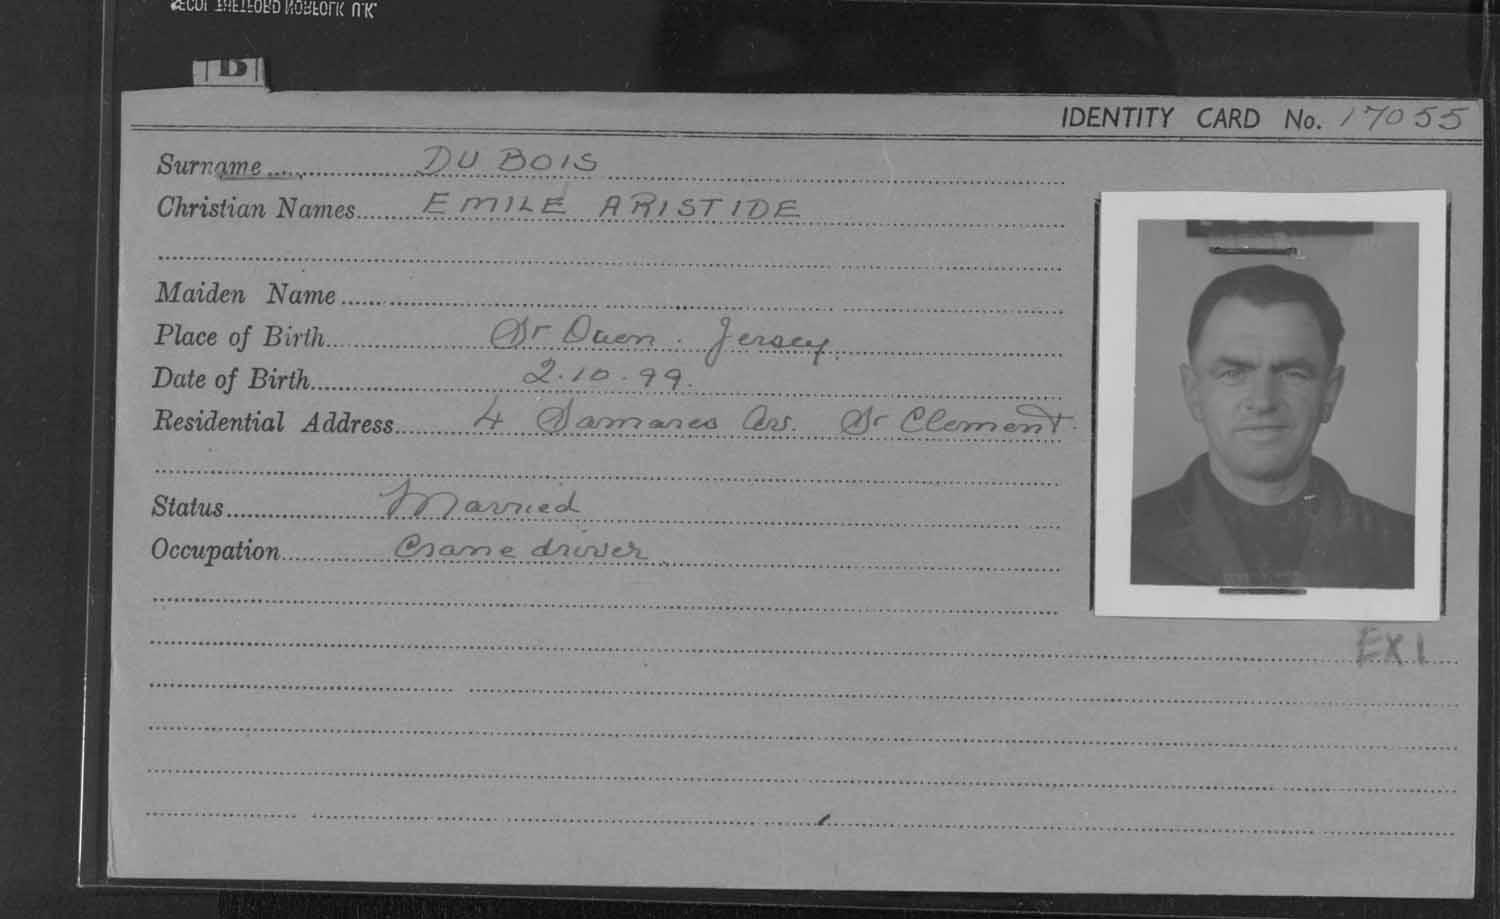 B
IDENTITY CARD No. 17055
Surname DU BOIS
Christian Names EMILE ARISTIDE
Maiden Name
Place of Birth St Ouen. Jersey.
Date of Birth 2.10.99.
Residential Address 4 Samares Av. St Clement.
Status Married
Occupation Crane driver
EX 1